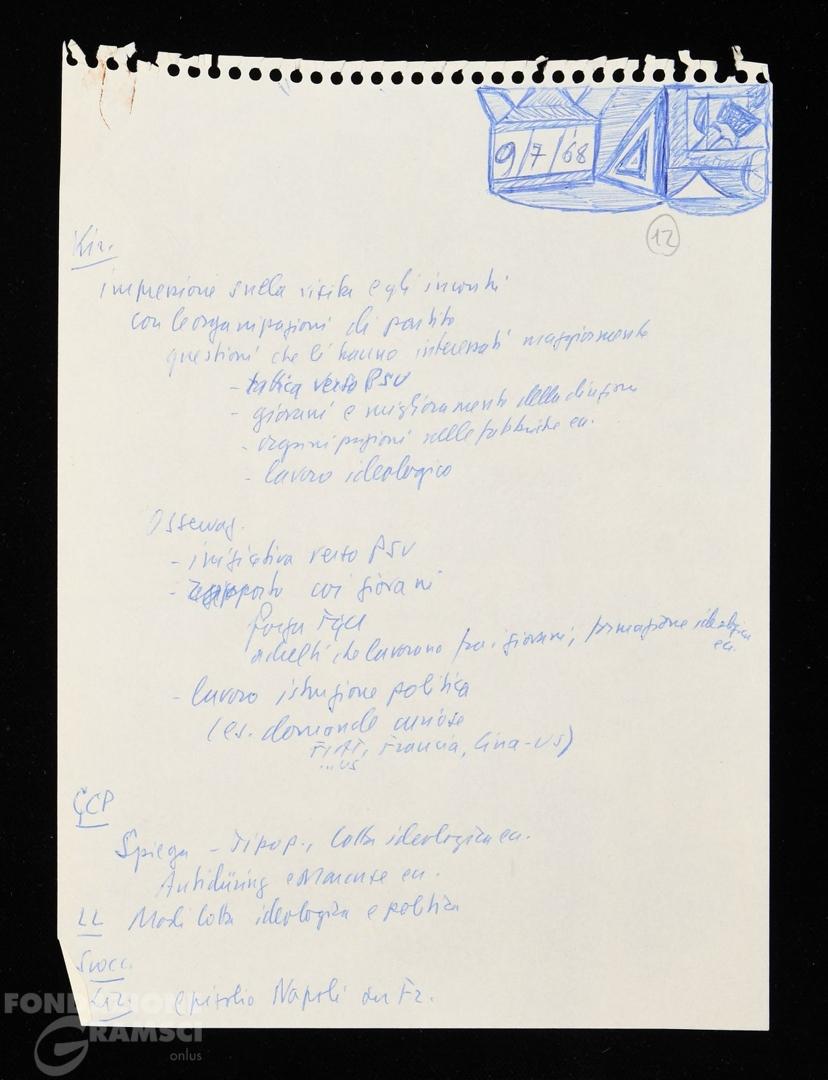 9/7/68
12
Kir.
impressione sulla visita e gli incontri
con le organizzazioni di partito
questioni che li hanno interessati maggiormente
- tattica verso PSU
- giovani e miglioramento della direzione
- organizzazioni nelle fabbriche ecc.
- lavoro ideologico
Osservaz.
- iniziativa verso PSU
- rapporto coi giovani
forza FGCI
che lavorano fra i giovani, formazione ideologica
ecc.
- lavoro istruzione politica
(es. domande curiose
FIAT, Francia, Cina-US)
...US
GCP
Spiega - lotta ideologica ecc.
Antidüring e Marcuse ecc.
LL Modi lotta ideologica e politica
Kir. episodio Napoli su Fr.
FONDAZIONE
GRAMSCI
onlus